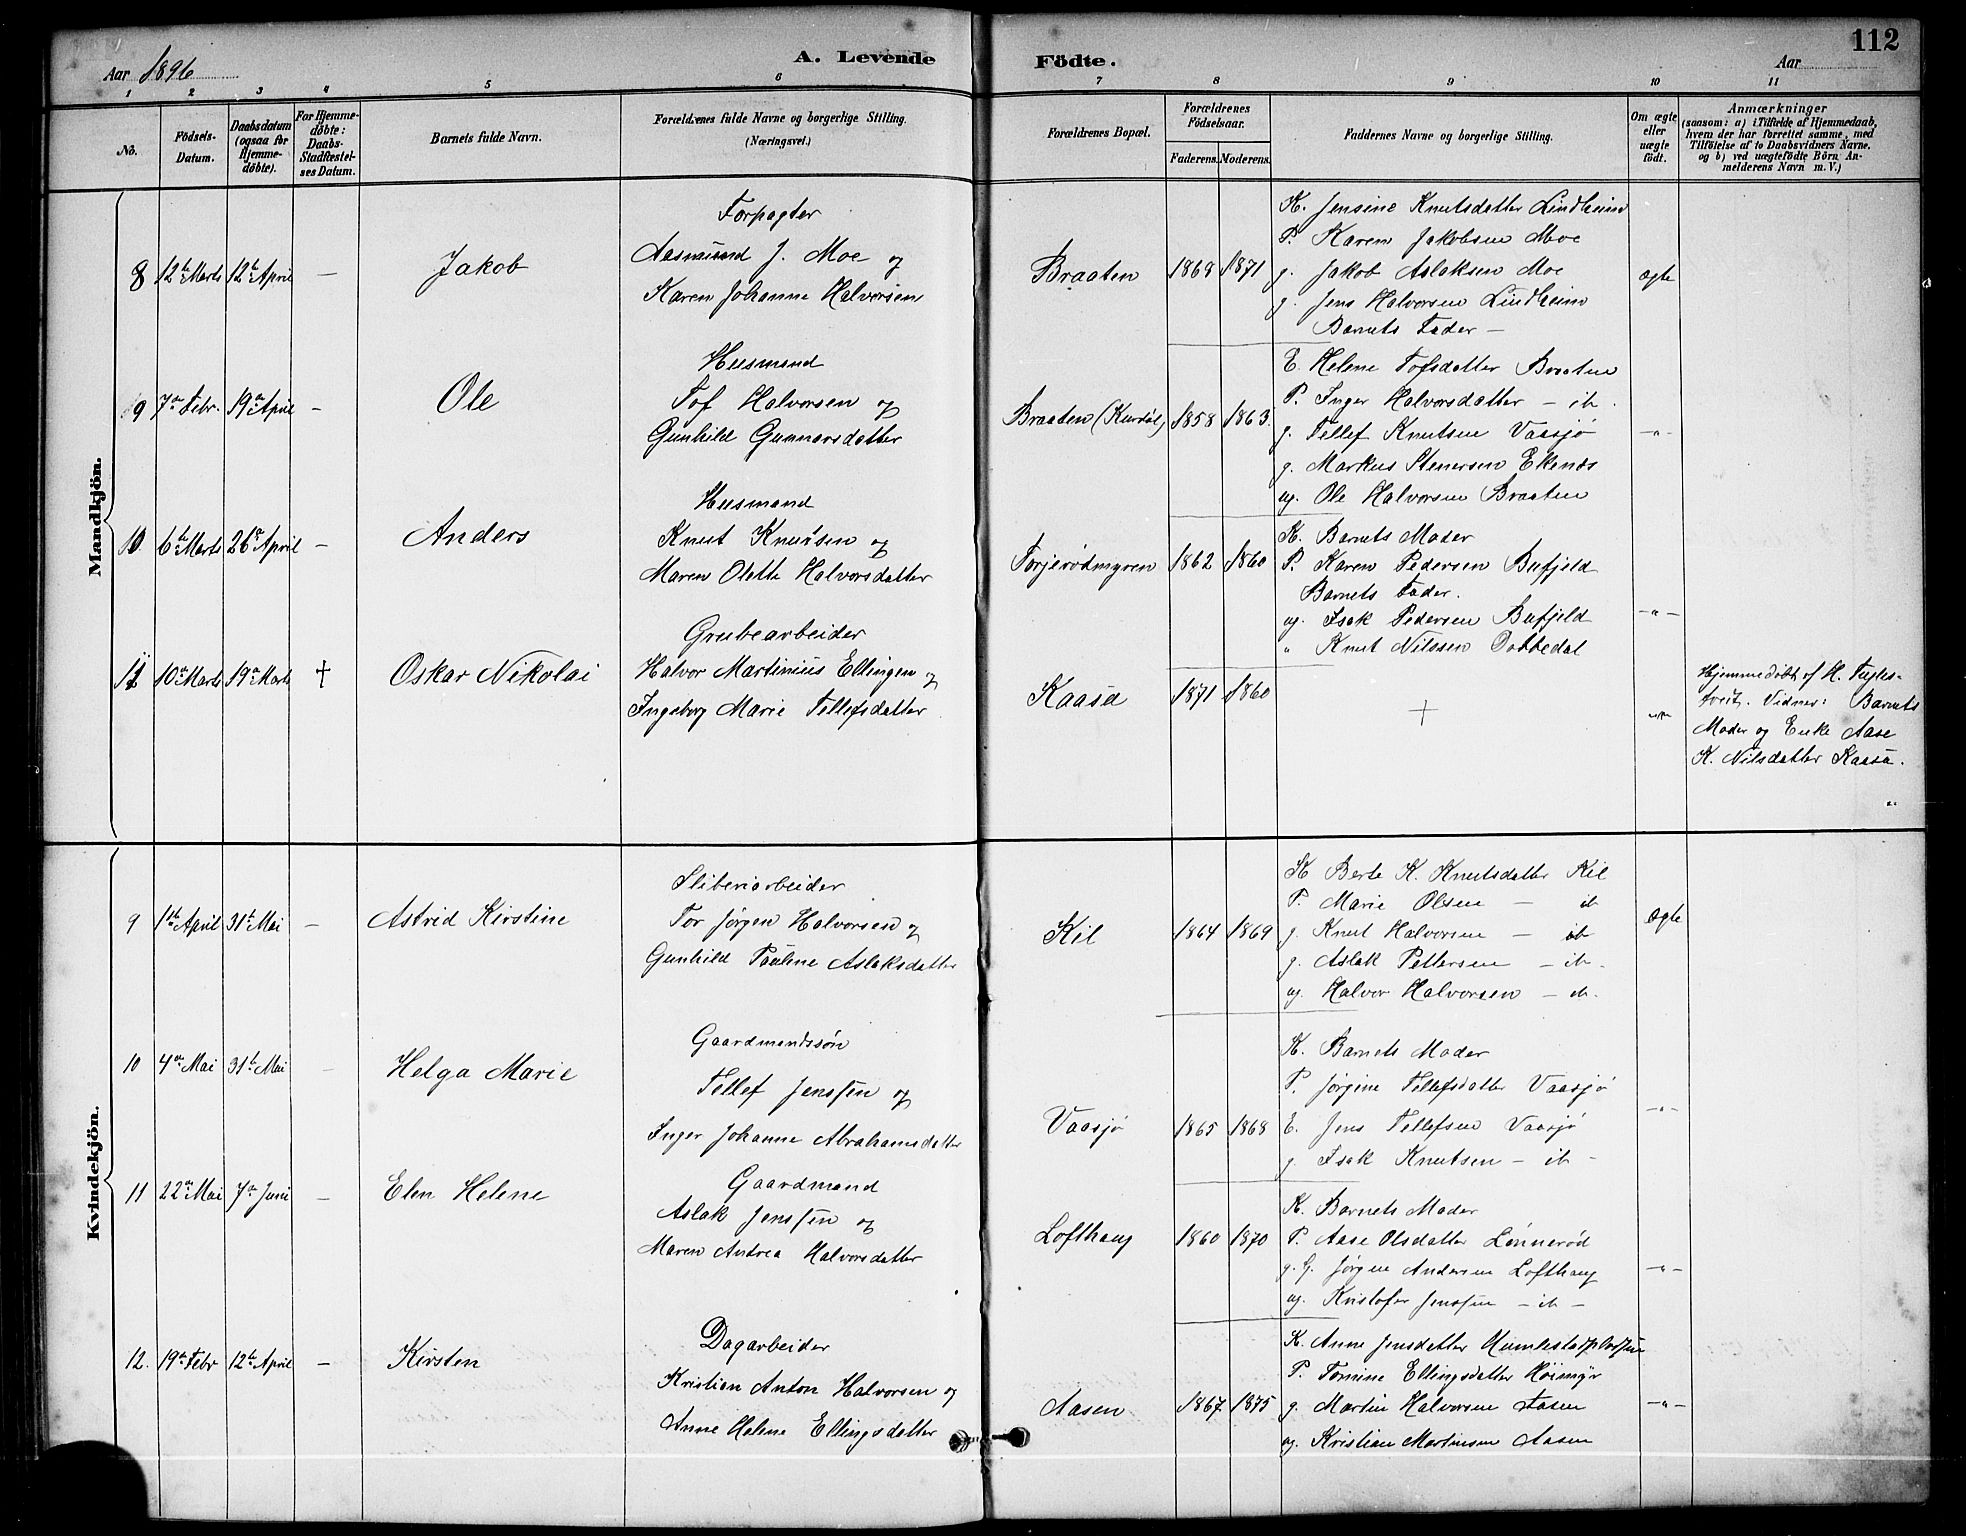 112
Aar 1896
A. Levende Födte.
Aar
1 2 3 4 5 6 7 8 9 10 11
No.
Födsels-Datum.
Daabsdatum (ogsaa for Hjemmedöbte).
For Hjemmedöbte: Daabs-Stadfæstelses Datum.
Barnets fulde Navn.
Forældrenes fulde Navne og borgerlige Stilling. (Næringsvei.)
Forældrenes Bopæl.
Forældrenes Födselsaar.
Faderens. Moderens.
Faddernes Navne og borgerlige Stilling.
Om ægte eller uægte födt.
Anmærkninger
(saasom: a) i Tilfælde af Hjemmedaab,
hvem der har forrettet samme, med
Tilföielse af to Daabsvidners Navne.
og b) ved uægtefödte Börn An-
melderens Navn m. V.)
Mandkjön.
8 12te Marts 12te April — Jakob
Forpagter
Aasmund J. Moe og
Karen Johanne Halvorsen
Braaten 1869 1871
K. Jensine Knutsdatter Lindheim
P. Karen Jakobsen Moe
g. Jakob Aslaksen Moe
g. Jens Halvorsen Lindheim
Barnets Fader —
ægte
9 7de Febr. 19de April — Ole
Husmand
Tof Halvorsen og
Gunhild Gunnarsdatter
Braaten 1858 1863.
E. Helene Tofsdatter Braaten
P. Inger Halvorsdatter — ib.
g. Tellef Knutsen Vaasjø
g. Markus Stenersen Ekenæs
ug. Ole Halvorsen Braaten
—"—
10 6te Marts 26de April — Anders
Husmand
Knut Knutsen og
Maren Olette Halvorsdatter
Torjerødmyren 1862 1860
K. Barnets Moder
P. Karen Pedersen Bufjeld
Barnets Fader.
ug. Isak Pedersen Bufjeld
" Knut Nilssen Dobbedal
—"—
11 10de Marts 19de Marts † Oskar Nikolai
Grubearbeider
Halvor Martinius Ellingen og
Ingeborg Marie Tellefsdatter
Kaasa 1871 1860
†
—"—
Hjemmedøbt af H. Fugles-
tveit. Vidner: Barnets
Moder og Enke Aase
K. Nilsdatter Kaasa.
Kvindekjön.
9 1ste April 31te Mai — Astrid Kirstine
Sliberiarbeider
Tor Jørgen Halvorsen og
Gunhild Pauline Aslaksdatter
Kil 1864 1869
K Berte K. Knutsdatter Kil
P. Marie Olsen — ib
g. Knut Halvorsen — ib
g. Aslak Pettersen — ib.
ug. Halvor Halvorsen — ib.
ægte
10 4de Mai 31te Mai — Helga Marie
Gaardmandssøn
Tellef Jenssen og
Inger Johanne Abrahamsdatter
Vaasjø 1865 1868
K. Barnets Moder
P. Jørgine Tellefsdatter Vaasjø
E. Jens Tellefsen Vaasjø
g. Isak Knutsen — ib —
—"—
11 22de Mai 7de Juni — Elen Helene
Gaardmand
Aslak Jenssen og
Maren Andrea Halvorsdatter
Lofthaug 1860 1870
K. Barnets Moder
P. Aase Olsdatter Lønnerød
g. G. Jørgen Andersen Lofthaug
ug. Kristofer Jenssen — ib —
—"—
12. 19de Febr 12te April — Kirsten
Dagarbeider
Kristian Anton Halvorsen og
Anne Helene Ellingsdatter
Aasen 1867 1875
K. Anne Jensdatter
P. Tomine Ellingsdatter Høimyr
g. Martin Halvorsen Aasen
ug. Kristian Martinsen Aasen
—"—